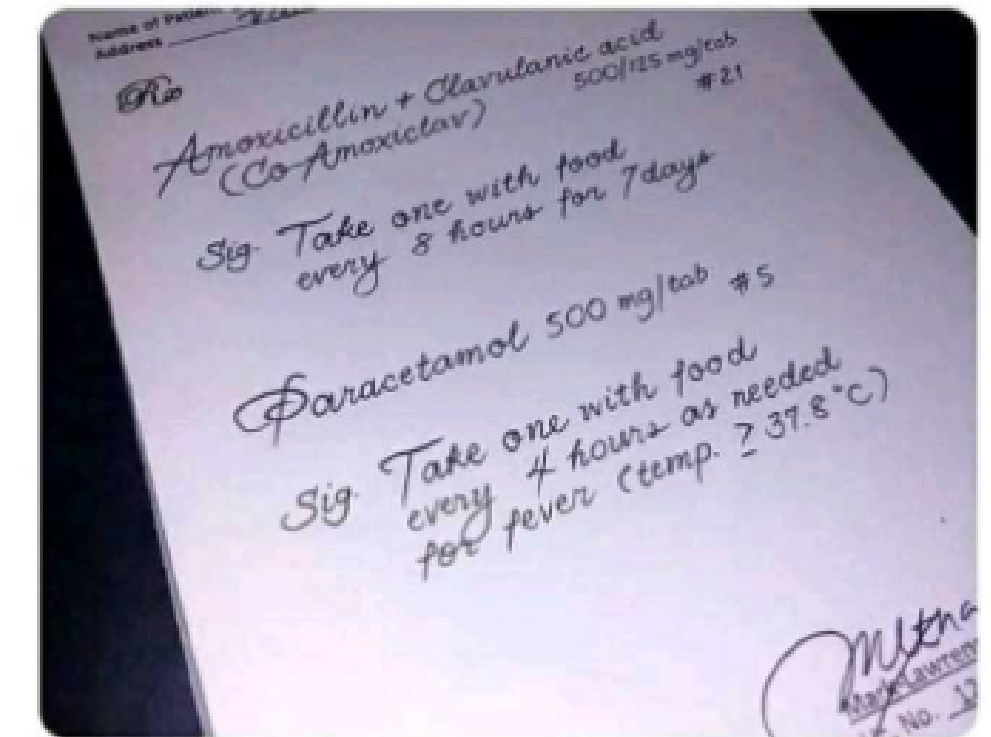 Name of Patient
Address
Rx
Amoxicillin + Clavulanic acid
500/125 mg/tab
(Co-Amoxiclav) #21
Sig. Take one with food
every 8 hours for 7 days
Paracetamol 500 mg/tab #5
Sig. Take one with food
every 4 hours as needed
for fever (temp. ≥ 37.8 °C)
No.